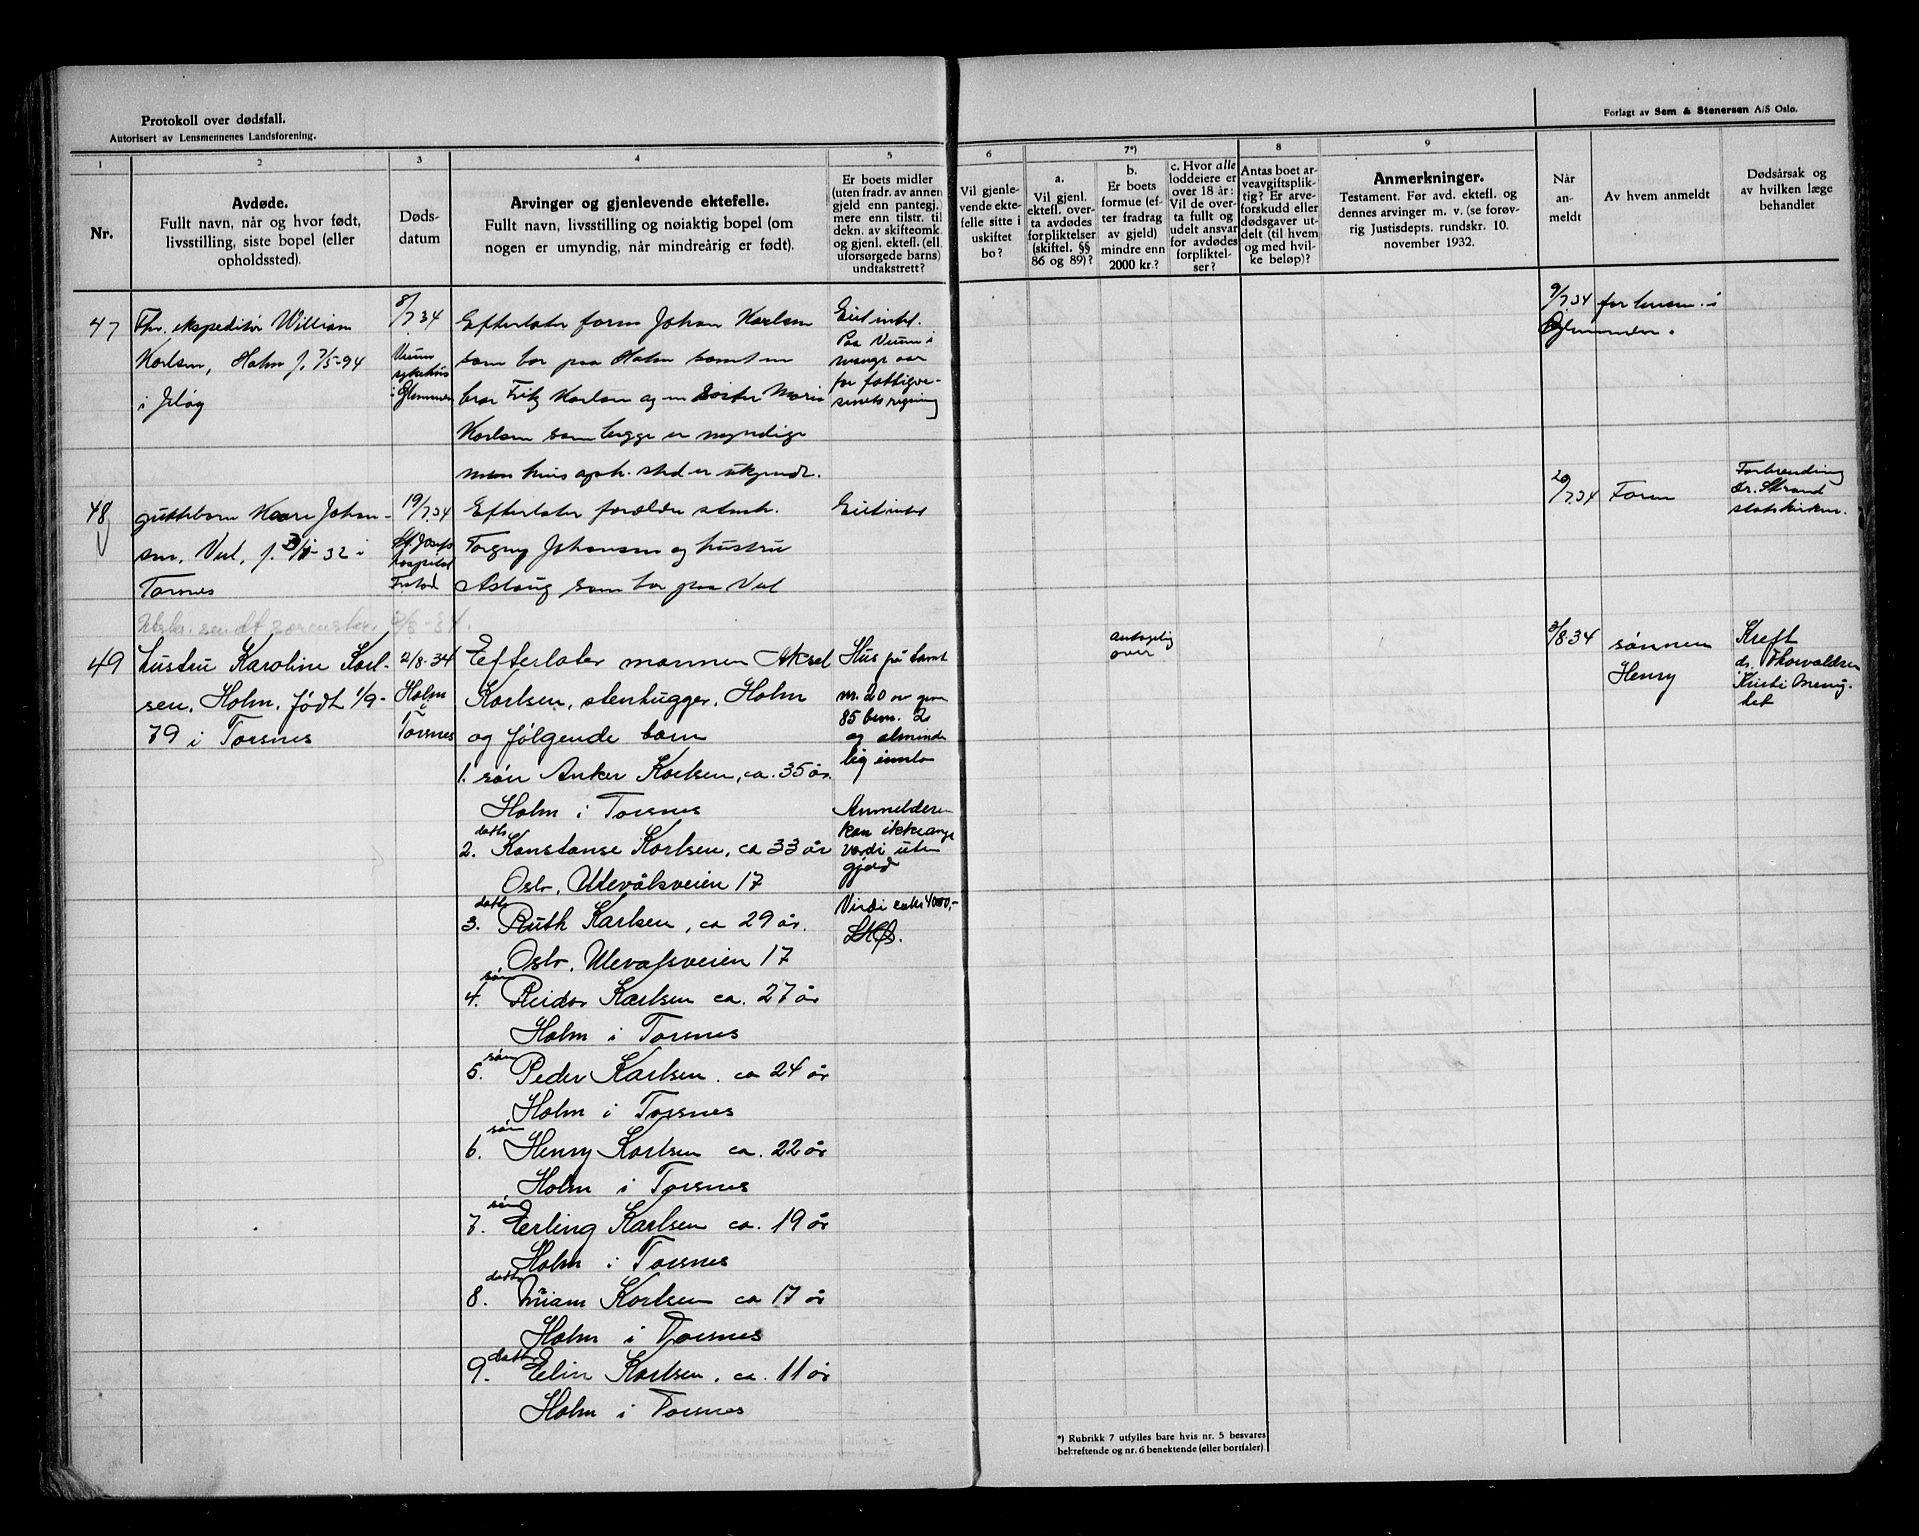 Protokoll over dødsfall.
Autorisert av Lensmennenes Landsforening.
Forlagt av Sem & Stenersen A/S Oslo.
1
2
3
4
5
6
7*)
8
9
Nr.
Avdøde.
Fullt navn, når og hvor født,
livsstilling, siste bopel (eller
opholdssted).
Døds-
datum
Arvinger og gjenlevende ektefelle.
Fullt navn, livsstilling og nøiaktig bopel (om
nogen er umyndig, når mindreårig er født).
Er boets midler
(uten fradr. av annen
gjeld enn pantegj.)
mere enn tilstr. til
dekn. av skifteomk.
og gjenl. ektef. (ell.
uforsørgede barns)
undtakstrett?
Vil gjenle-
vende ekte-
felle sitte i
uskiftet
bo?
a.
Vil gjenl.
ektefl. over-
ta avdødes
forpliktelser
(skiftel. §§
86 og 89)?
b.
Er boets
formue (ef-
ter fradrag
av gjeld)
mindre enn
2000 kr.?
c. Hvor alle
loddeiere er
over 18 år:
Vil de over-
ta fullt og
udelt ansvar
for avdødes
forpliktel-
ser?
Antas boet ar-
veavgiftsplik-
tig? Er arve-
forskudd eller
dødsgaver ut-
delt (til hvem
og med hvil-
ke beløp)?
Anmerkninger.
Testament. Før avd. ektefl. og
dennes arvinger m. v. (se forøv-
rig Justisdepts. rundskr. 10.
november 1932.
Når
an-
meldt
Av hvem anmeldt
Dødsårsak og
av hvilken læge
behandlet
47
Fhv. ekspeditør William
Karlsen, Holm f. 7/5-94
i Jeløy
8/7 34
Veum
sykehus
i Glemmen
Efterlater farm Johan Karlsen
som bor paa Holm samt en
bror Fritz Karlsen og en søster Marie
Karlsen som begge er myndige
men hvis oph. sted er ukjendt.
Eiet intet.
Paa Veum i
mange aar
for fattigve-
senets regning
9/7 34
for lensm. i
Glemmen.
48
guttebarn Kaare Johan-
sen, Vel, f. -32 i
Torsnes
19/7.34
St. Josefs
hospital
Fr.stad
Efterlater forældre stenh.
Torgny Johansen og hustru
Aslaug som bor paa Vel
Eiet intet
20/7 34
Faren
Forbrending
dr. Strand
statskirken.
sendt sorenskr. -34.
49
Hustru Karoline Karl-
sen, Holm, født 1/9-
79 i Torsnes
2/8-34
Holm
i
Torsnes
Efterlater mannen Aksel
Karlsen, stenhugger, Holm
og følgende barn
1. søn Anker Karlsen, ca. 35 år.
Holm i Torsnes
datter
2. Konstanse Karlsen, ca 33 år
Oslo, Ulevålsveien 17
datter
3. Ruth Karlsen, ca 29 år.
Oslo, Ulevalsveien 17
søn
4. Reidar Karlsen ca. 27 år
Holm i Torsnes
søn
5. Peder Karlsen. ca 24 år
Holm i Torsnes
søn
6. Henry Karlsen ca. 22 år
Holm i Torsnes
søn
7. Erling Karlsen ca. 19 år
Holm i Torsnes
datter
8. Miriam Karlsen ca 17 år
Holm i Torsnes
datter
9. Elin Karlsen, ca. 11 år
Holm i Torsnes
Hus på tomt
nr. 20 av gnr
85 bnr. 2
og alminde
lig innbo
Anmelderen
kan ikke angi
verdi uten
gjeld
Verdi ca kr 4000,-
antagelig
over
3/8-34
sønnen
Henry
Kreft
dr. Thorvaldsen
Kristi menig-
het
*) Rubrikk 7 utfylles bare hvis nr. 5 besvares
bekreftende og nr. 6 benektende (eller bortfaler)